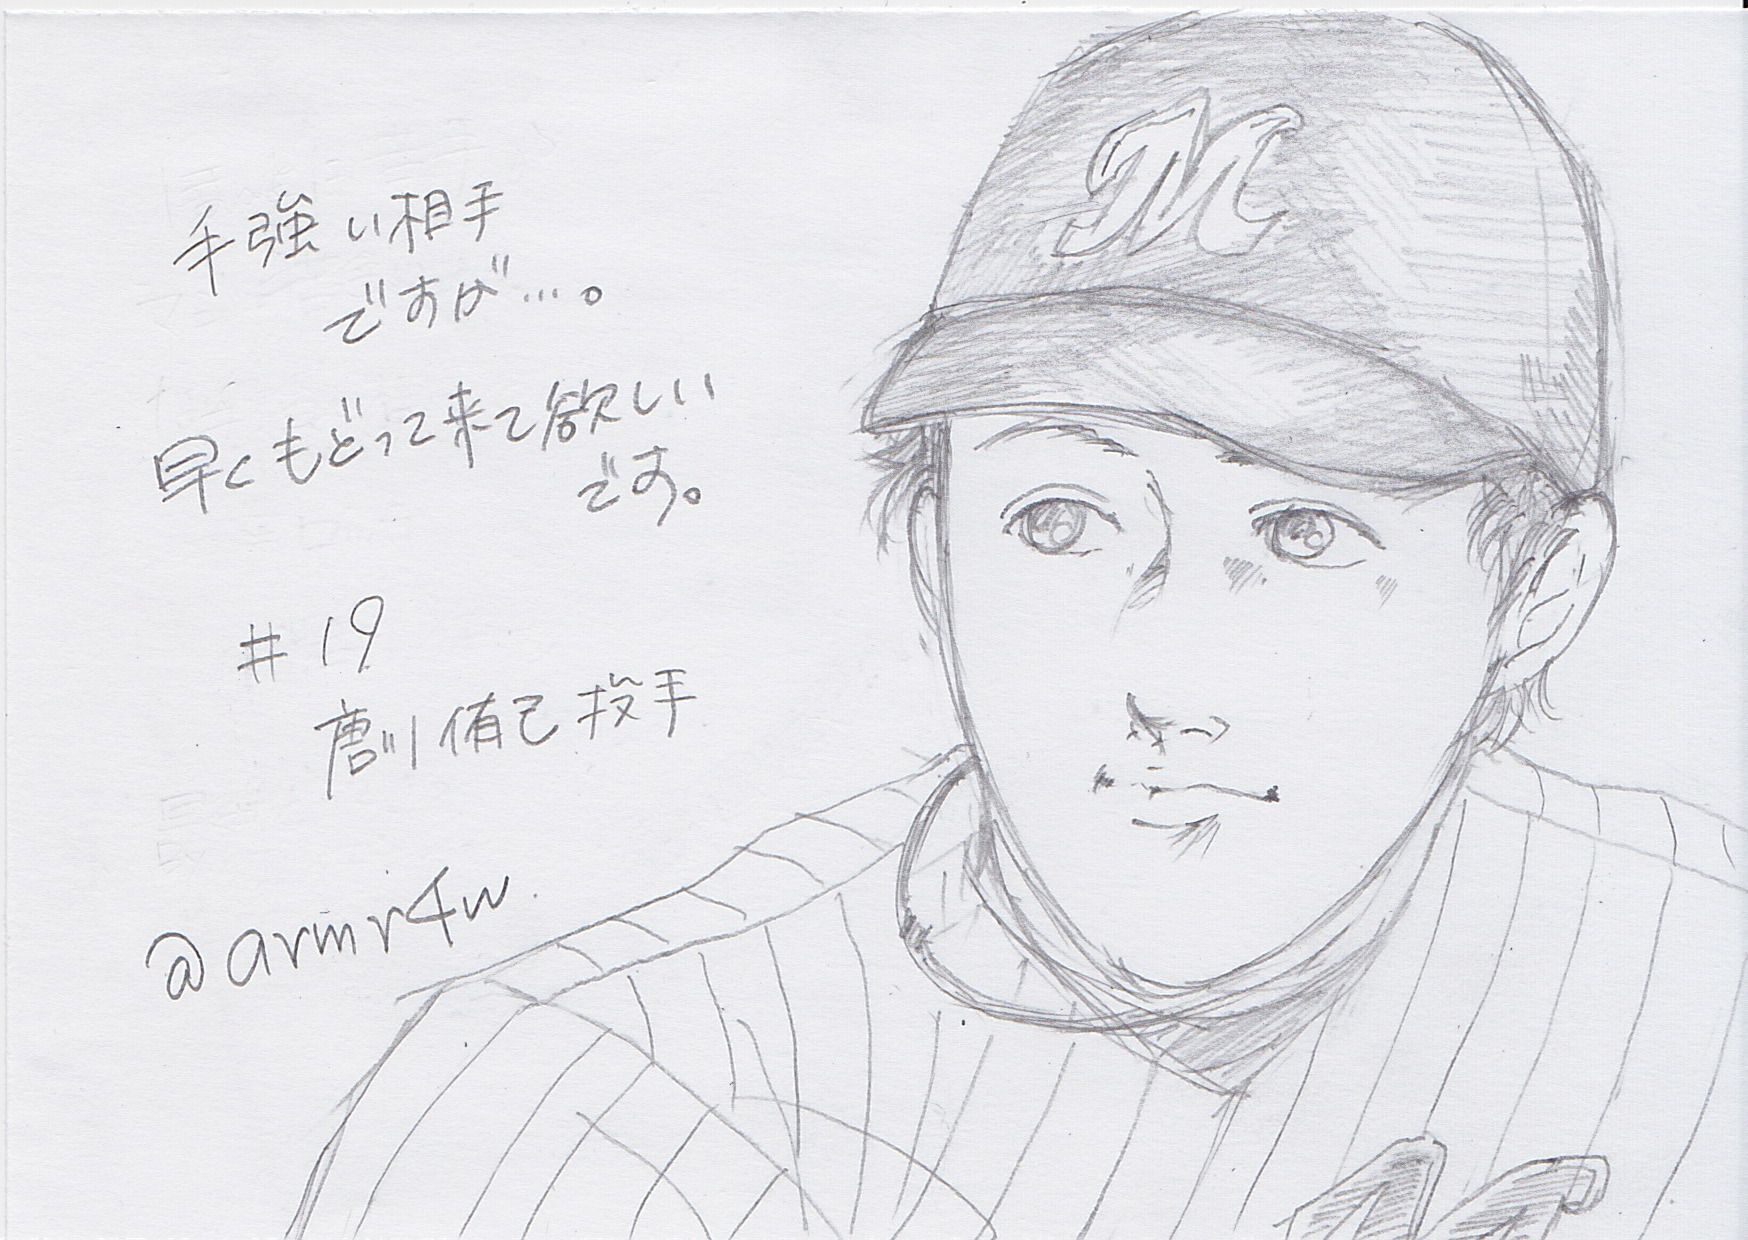 手強い相手
ですが…。
早くもどって来て欲しい
です。
#19
唐川侑己投手
@armr4w
M